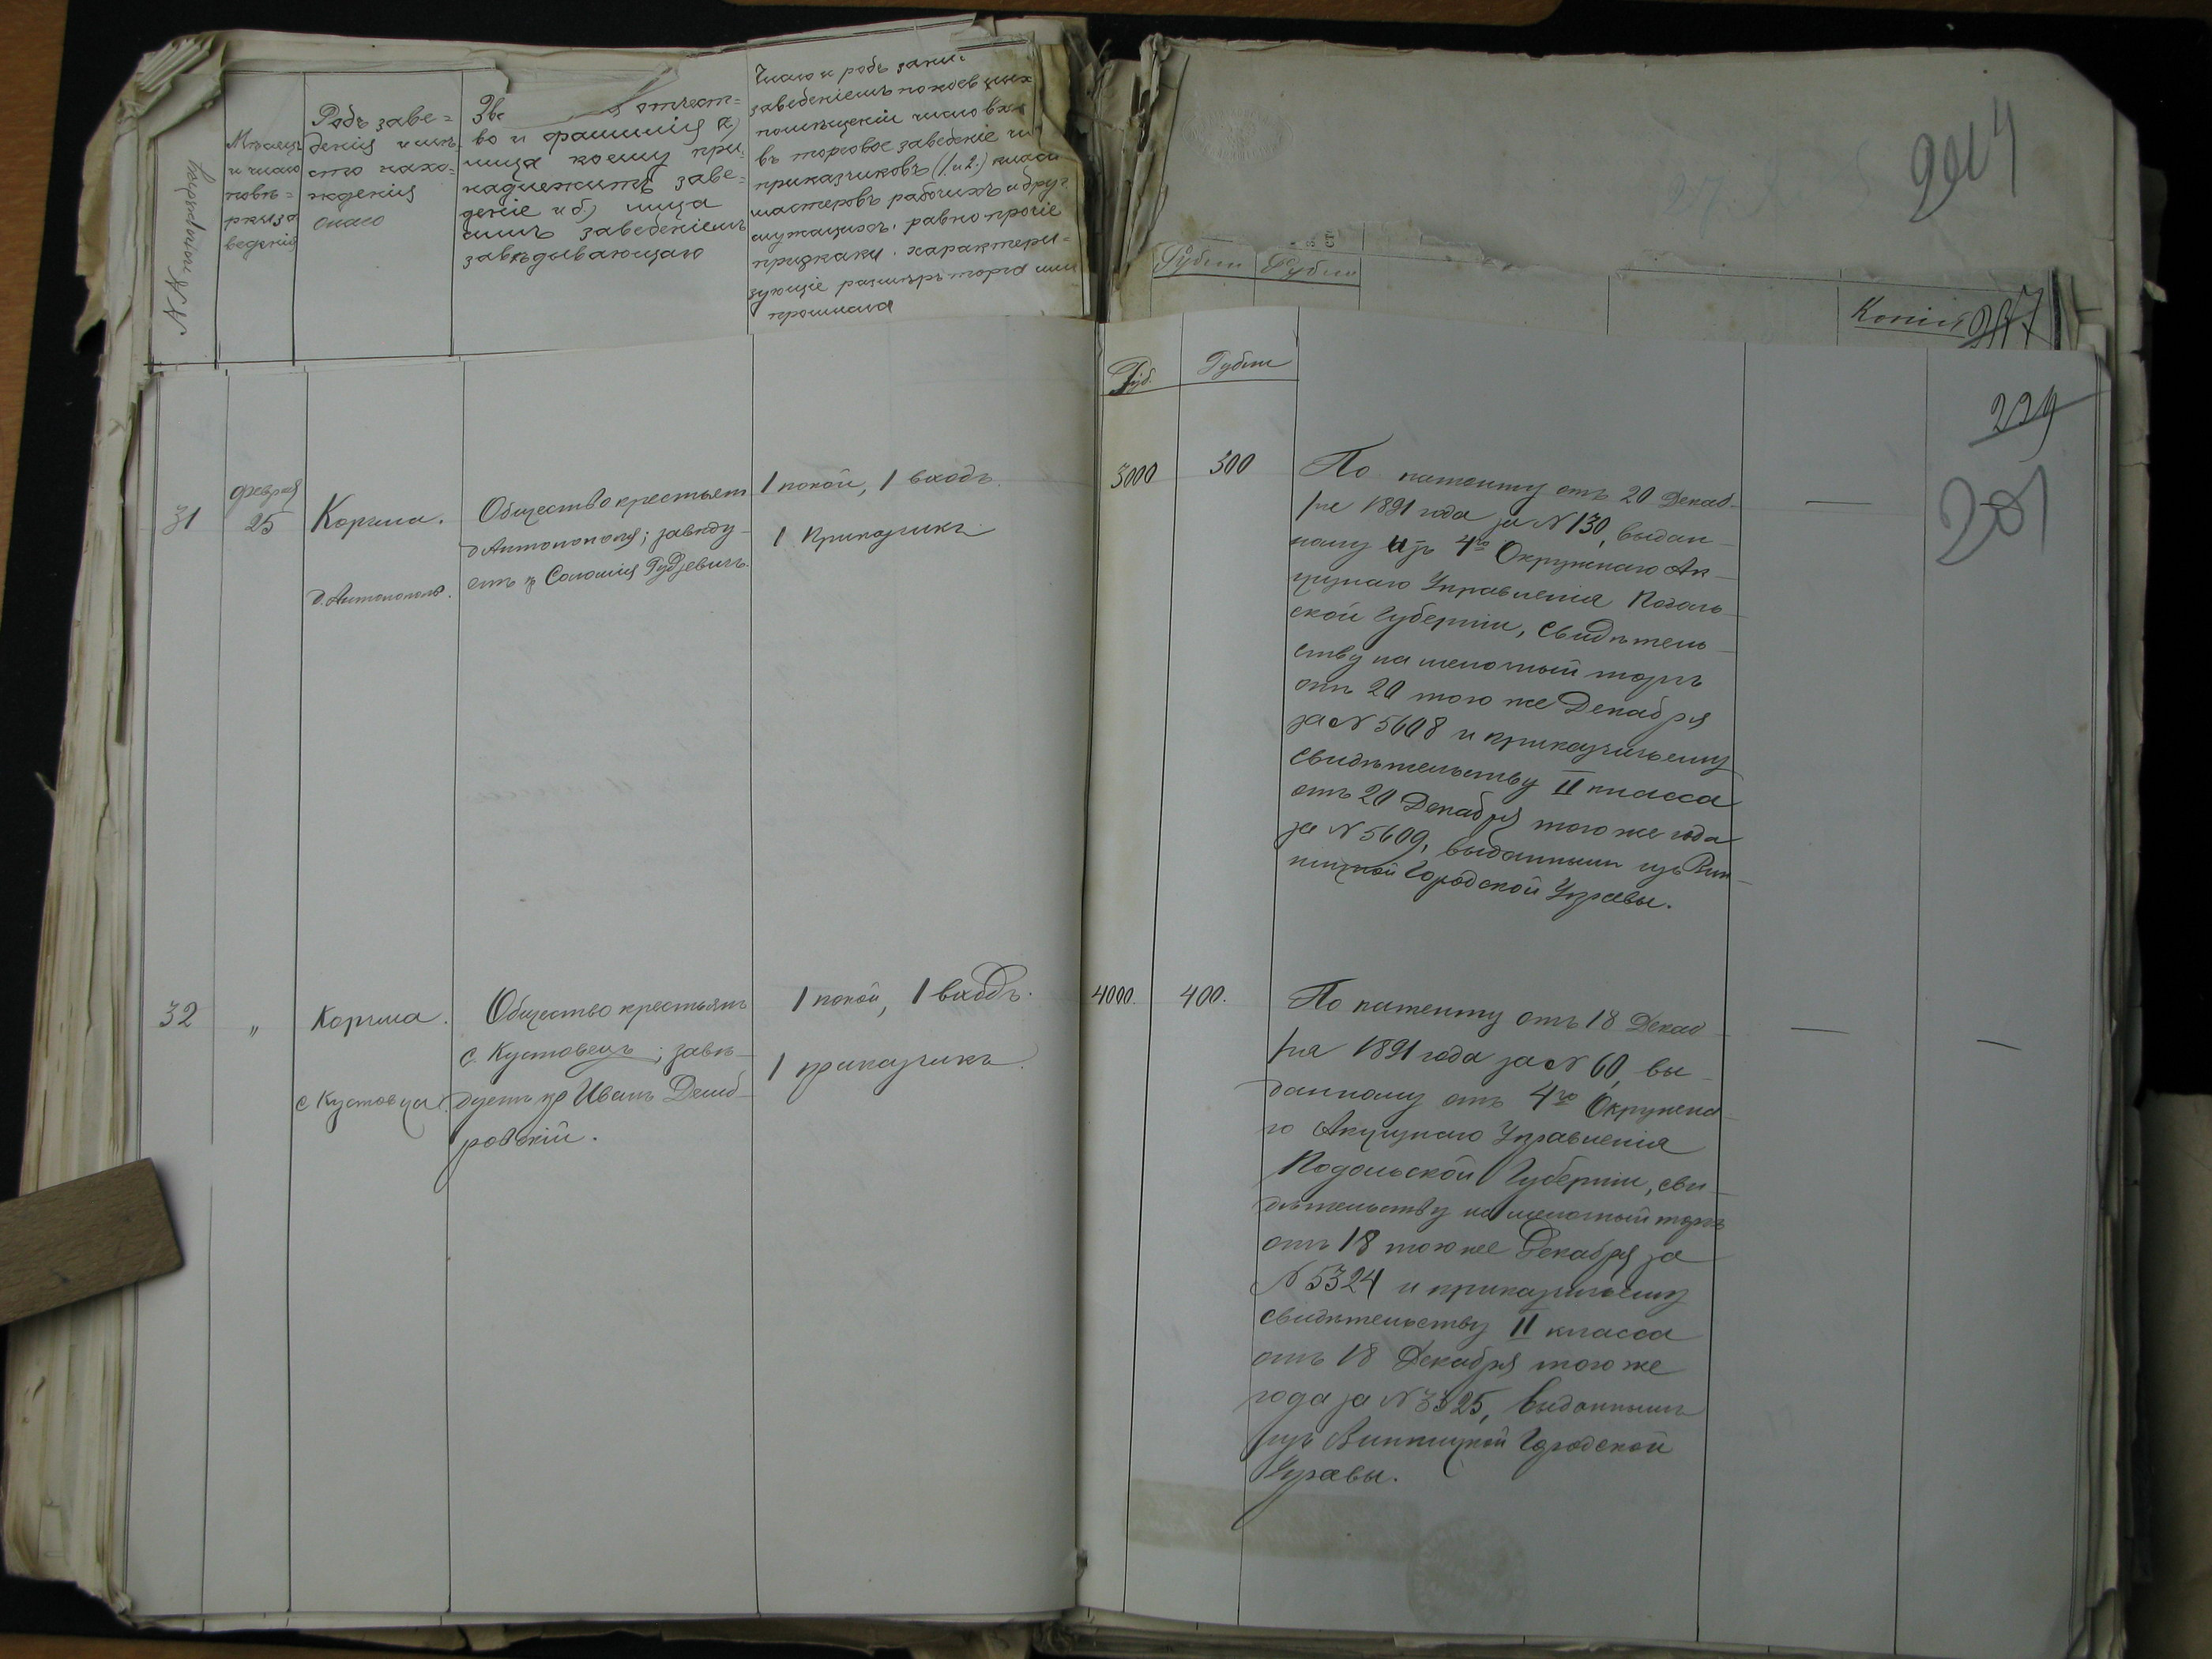 №№ попорядку
Мѣсяцъ
и число
повѣ=
рки за
веденія
Родъ заве=
денія и мѣ
сто нахо=
жденія
онаго
Зва отчест=
во и фамилія а)
лица коему при
надлежитъ заве=
деніе и б) лица
симъ заведеніемъ
завѣдывающаго
Число и родъ зани
заведеніемъ покоев
помѣщеніи число вхо
въ торговое заведеніе
приказчиковъ (1 и 2) класс
мастеровъ рабочихъ и друг
служащихъ, равно прочіе
признаки, характери=
зующіе размѣръ торга или
промысла
904
Рубли Рубли
Копіи
Руб. Рубли
229
201
31
февраля
25
Корчма.
д. Антонополь.
Общество крестьян
д Антонополя; завѣду-
етъ Соломія Гудзевичъ.
1 покой, 1 входъ.
1 Приказчикъ
3000
300
По патенту отъ 20 Декаб-
ря 1891 года за № 130, выдан-
ному изъ 4го Окружнаго Ак-
цизнаго Управленія Подоль-
ской Губерніи, свидѣтель-
ству на мелочный торгъ
отъ 20 того же Декабря
за № 5608 и приказчичьему
свидѣтельству II класса
отъ 20 Декабря того же года
за № 5609, выданными изъ Вин-
ницкой Городской Управы.
—
32
"
Корчма.
с Кустовца.
Общество крестьянъ
с. Кустовецъ; завѣ-
дуетъ кр Иванъ Демб-
ровскій.
1 покой, 1 входъ.
1 приказчикъ.
4000.
400.
По патенту отъ 18 Декаб-
ря 1891 года за № 60, вы-
данному отъ 4го Окружна-
го Акцизнаго Управленія
Подольской Губерніи, сви-
дѣтельству на мелочный торгъ
отъ 18 того же Декабря за
№ 5324 и приказчичьему
свидѣтельству II класса
отъ 18 Декабря того же
года за № 3325, выданнымъ
изъ Винницкой Городской
Управы.
—
—